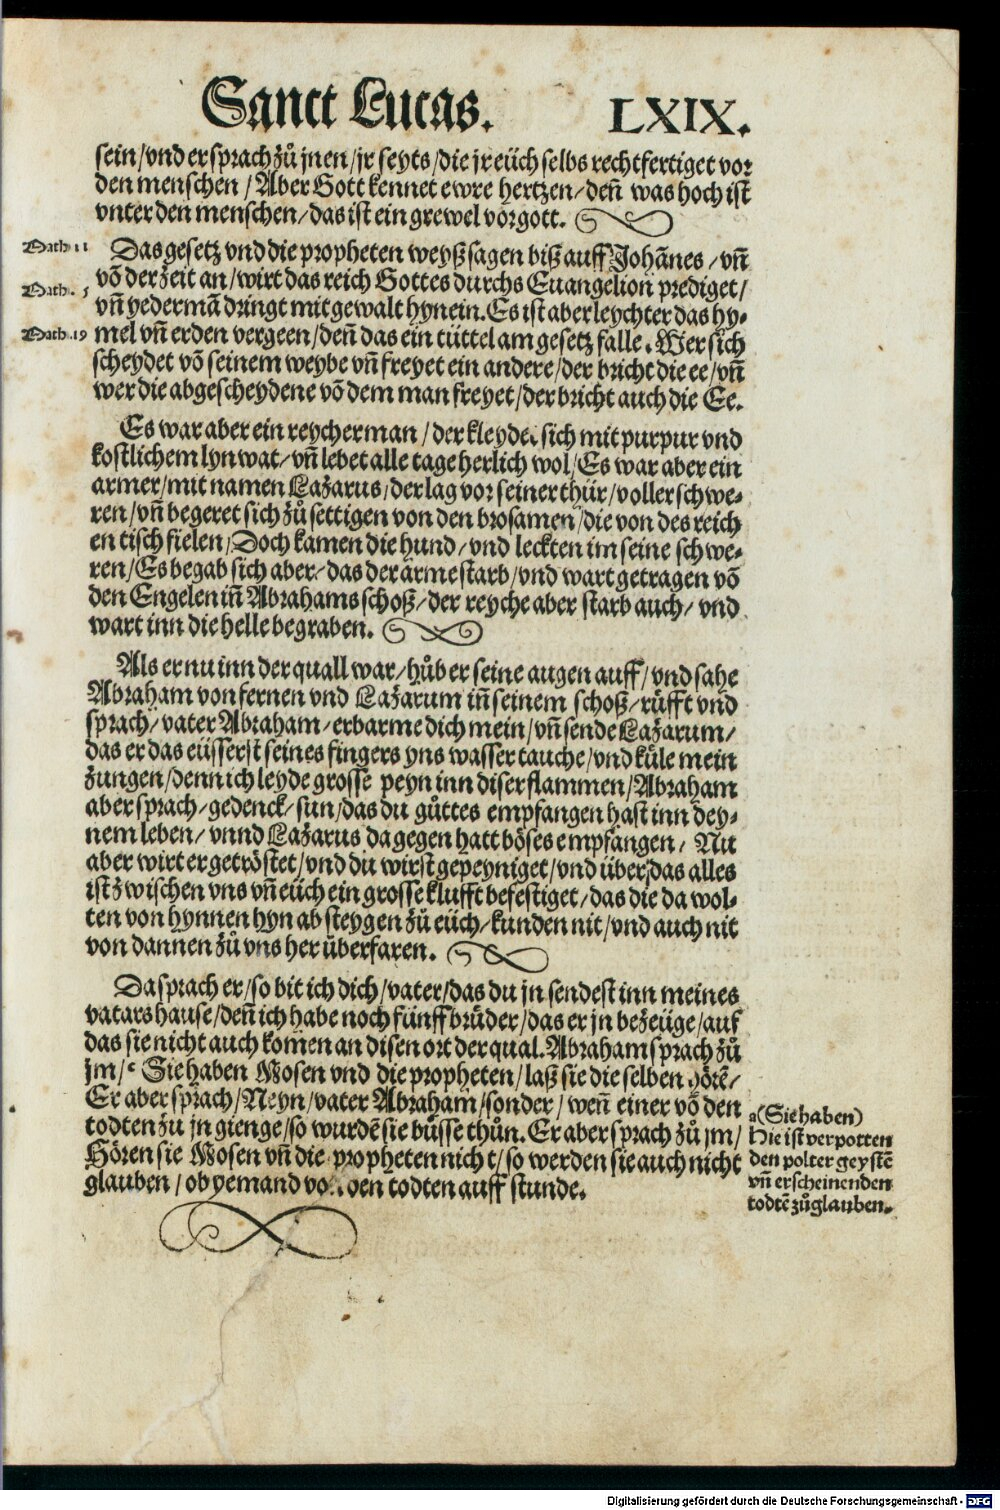 Sanct Lucas. LXIX.
sein/vnd er sprach zů jnen/jr seyts/die jr eüch selbs rechtfertiget vor
den menschen/Aber Gott kennet ewre hertzen/deñ was hoch ist
vnter den menschen/das ist ein grewel vor gott.
Math 11
Das gesetz vnd die propheten weyßsagen biß auff Johãnes/vñ
võ der zeit an/wirt das reich Gottes durchs Euangelion prediget/
Math. 5
vñ yedermã dringt mit gewalt hynein. Es ist aber leychter das hy-
Math.19
mel vñ erden vergeen/deñ das ein tüttel am gesetz falle. Wer sich
scheydet võ seinem weybe vñ freyet ein andere/der bricht die ee/vñ
wer die abgescheydene võ dem man freyet/der bricht auch die Ee.
Es war aber ein reycher man/der kleydet sich mit purpur vnd
kostlichem lynwat/vñ lebet alle tage herlich wol/Es war aber ein
armer/mit namen Lazarus/der lag vor seiner thür/voller schwe-
ren/vñ begeret sich zů settigen von den brosamen/die von des reich
en tisch fielen/Doch kamen die hund/vnd leckten im seine schwe-
ren/Es begab sich aber/das der arme starb/vnd wart getragen võ
den Engelen iñ Abrahams schoß/der reyche aber starb auch/vnd
wart inn die helle begraben.
Als er nu inn der quall war/hůb er seine augen auff/vnd sahe
Abraham von fernen vnd Lazarum iñ seinem schoß/rüfft vnd
sprach/vater Abraham/erbarme dich mein/vñ sende Lazarum/
das er das eüsserst seines fingers yns wasser tauche/vnd küle mein
zungen/denn ich leyde grosse peyn inn diser flammen/Abraham
aber sprach/gedenck/sun/das du gůttes empfangen hast inn dey-
nem leben/vnnd Lazarus dagegen hatt böses empfangen/Nu
aber wirt er getröstet/vnd du wirst gepeyniget/vnd über das alles
ist zwischen vns vñ eüch ein grosse klufft befestiget/das die da wol-
ten von hynnen hyn ab steygen zů eüch/kunden nit/vnd auch nit
von dannen zů vns her überfaren.
Da sprach er/so bit ich dich/vater/das du jn sendest inn meines
vatars hause/deñ ich habe noch fünff brüder/das er jn bezeüge/auf
das sie nicht auch komen an disen ort der qual. Abraham sprach zů
jm/ Sie haben Mosen vnd die propheten/laß sie die selben hörẽ/
Er aber sprach/Neyn/vater Abraham/sonder/weñ einer võ den
todten zu jn gienge/so wurdẽ sie büsse thůn. Er aber sprach zů jm/
Hören sie Mosen vñ die propheten nicht/so werden sie auch nicht
glauben/ob yemand von den todten auff stunde.
a(Sie haben)
Hie ist verpotten
den polter geystẽ
vñ erscheinenden
todtẽ zůglauben.
Digitalisierung gefördert durch die Deutsche Forschungsgemeinschaft - DFG